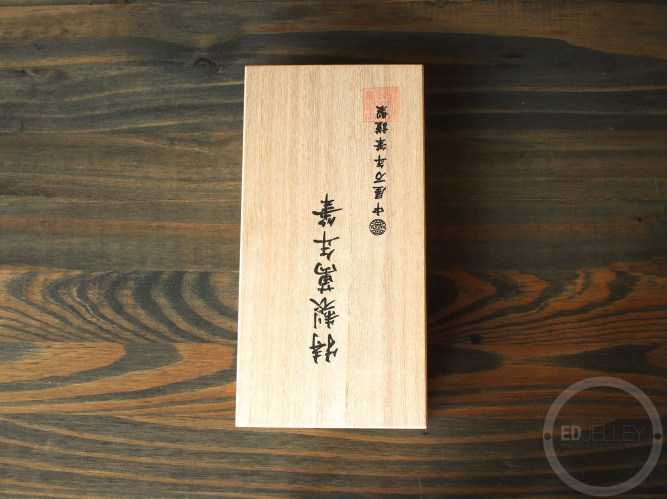 特製萬年筆
中屋万年筆謹製
EDJELLEY